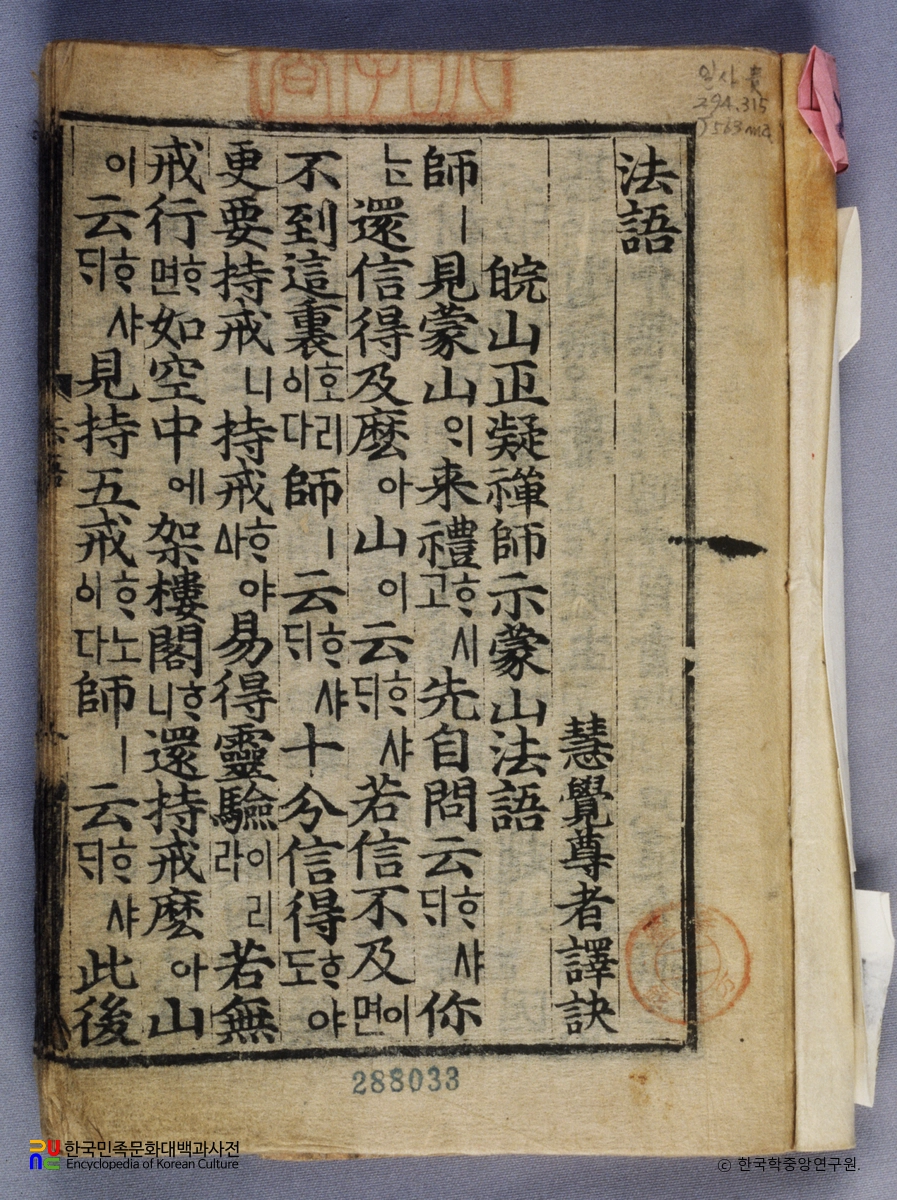 法語
慧覺尊者譯訣
皖山正凝禪師示蒙山法語
師ㅣ見蒙山ᄋᆡ来禮ᄒᆞ시고先自問云ᄒᆞ샤ᄃᆡ你
ᄂᆞᆫ還信得及麽아山이云ᄒᆞ샤ᄃᆡ若信不及이면
不到這裏호리이다師ㅣ云ᄒᆞ샤ᄃᆡ十分信得ᄒᆞ야도
更要持戒니持戒ᄒᆞ야ᅀᅡ易得靈驗이리라若無
戒行ᄒᆞ면如空中에架樓閣ᄒᆞ니還持戒麽아山
이云ᄒᆞ샤ᄃᆡ見持五戒ᄒᆞ노이다師ㅣ云ᄒᆞ샤ᄃᆡ此後
일사貴
294.315
288033
한국민족문화대백과사전
Encyclopedia of Korean Culture
ⓒ 한국학중앙연구원.